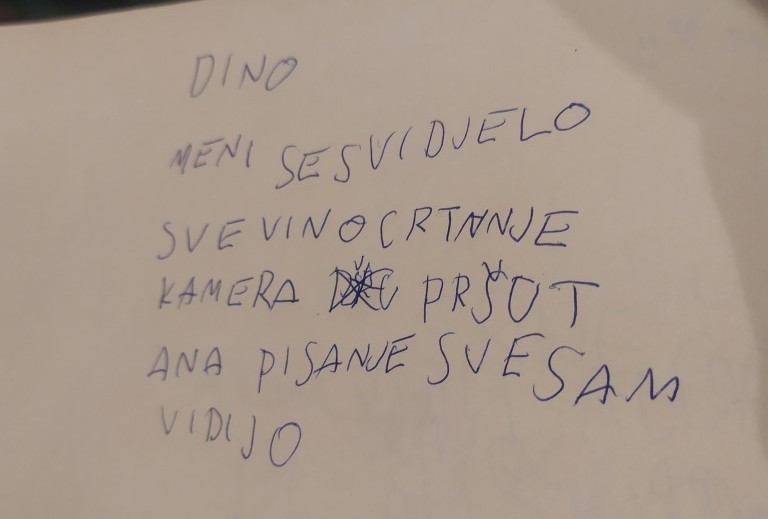 DINO
MENI SE SVIDJELO
SVE VINO CRTANJE
KAMERA PRŠUT
ANA PISANJE SVE SAM
VIDIJO